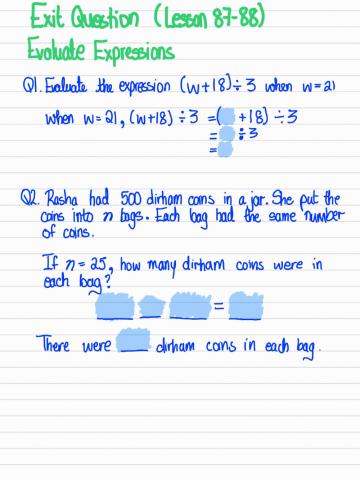 Exit Question (Lesson 87-88)
Evaluate Expressions
Q1. Evaluate the expression (w+18)÷3 when w=21
when w=21, (w+18)÷3 =( +18) ÷3
= ÷3
=
Q2. Rasha had 500 dirham coins in a jar. She put the
coins into n bags. Each bag had the same number
of coins.
If n=25, how many dirham coins were in
each bag?
=
There were dirham coins in each bag.